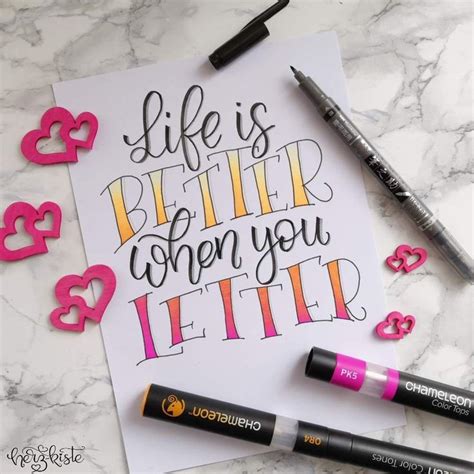 Life is
BETTER
when you
LETTER
PK5
CHAMELEON
Color Tops
CHAMELEON
OR4
Color Tones
herzkiste